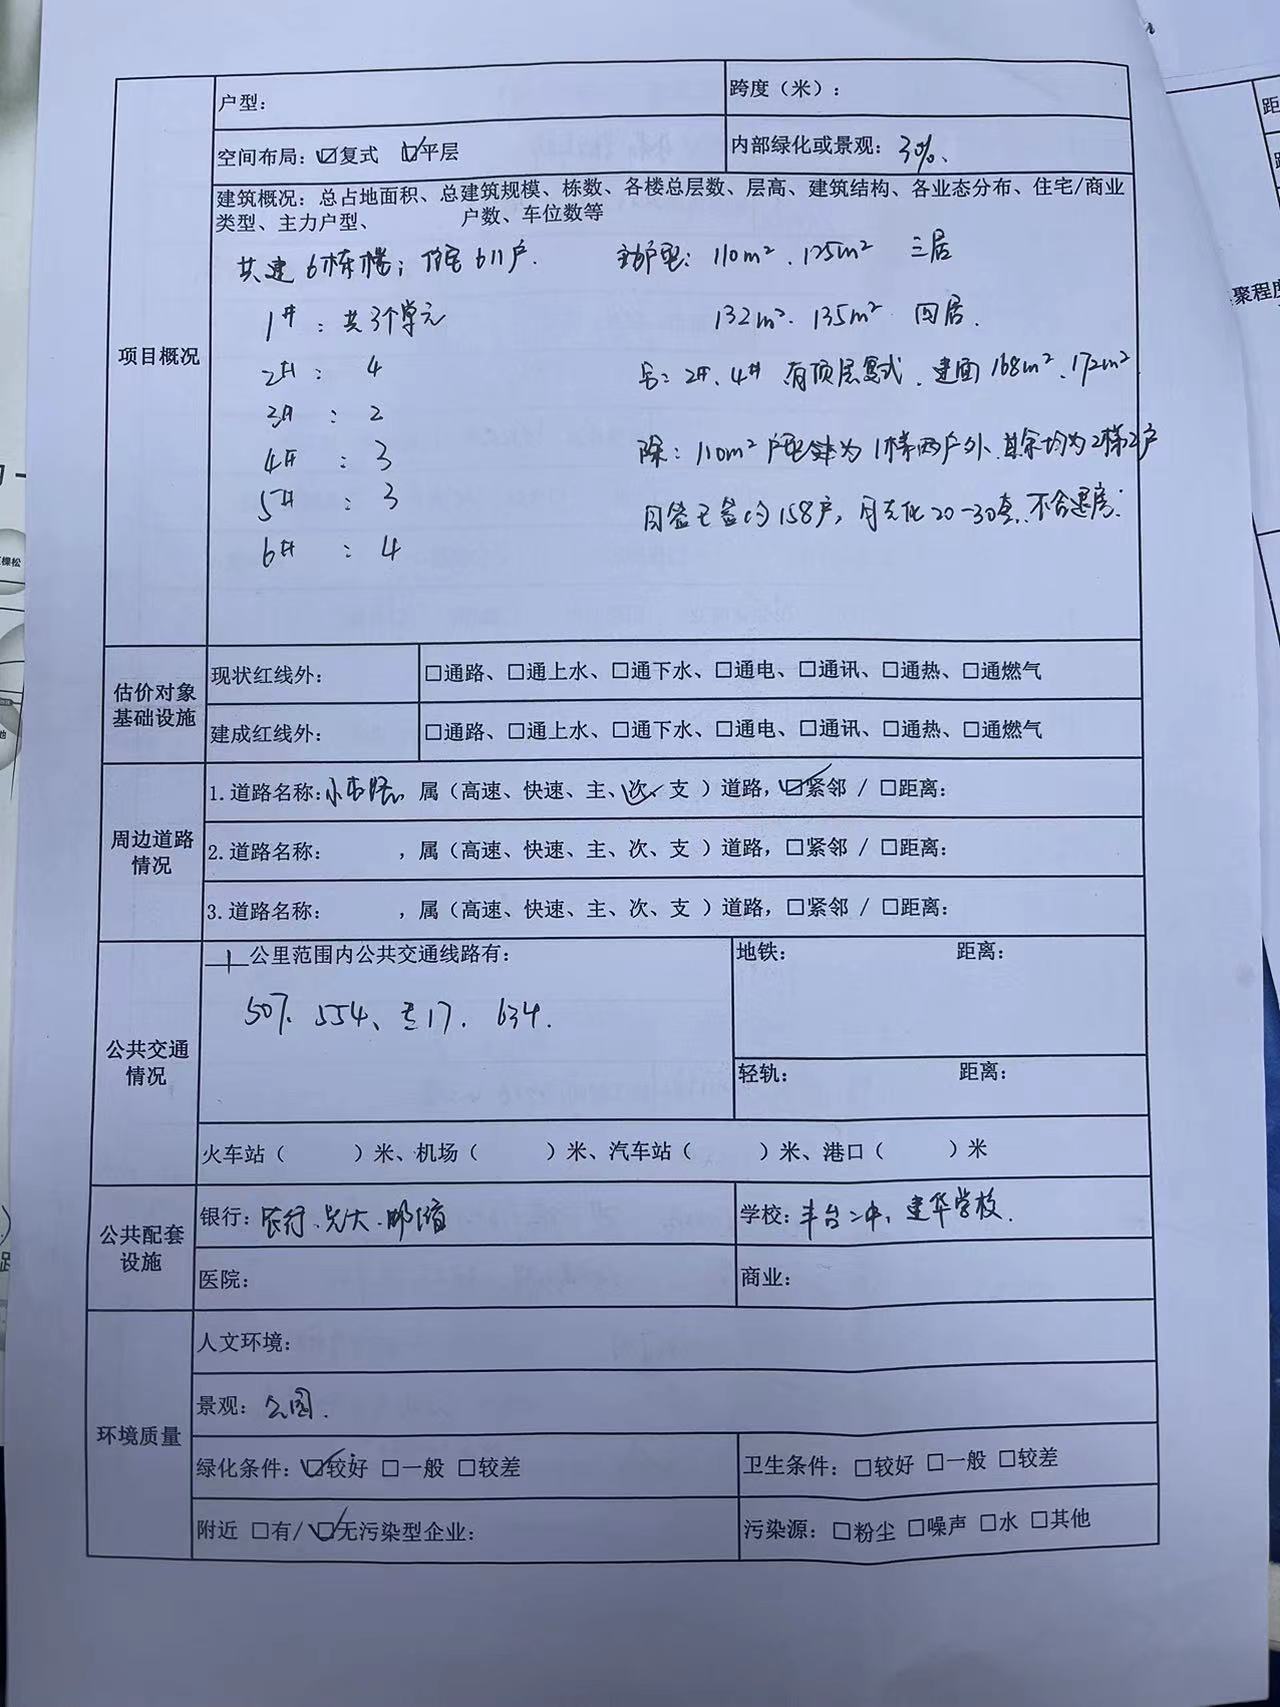 户型：
跨度（米）：
空间布局：☑复式 ☑平层
内部绿化或景观：30%、
建筑概况：总占地面积、总建筑规模、栋数、各楼总层数、层高、建筑结构、各业态分布、住宅/商业
类型、主力户型、 户数、车位数等
项目概况
共建6栋楼；住宅611户.
1#：共3个单元
2#：4
3#：2
4#：3
5#：3
6#：4
主力户型：110m²、125m² 三居
132m²、135m² 四居.
另：2#、4# 有顶层复式、建面168m²、172m²
除：110m²户型 为1梯两户外、其余均为2梯2户
网签已签约158户，月去化20-30套、不含退房.
估价对象
基础设施
现状红线外：
□通路、□通上水、□通下水、□通电、□通讯、□通热、□通燃气
建成红线外：
□通路、□通上水、□通下水、□通电、□通讯、□通热、□通燃气
周边道路
情况
1.道路名称： ，属（高速、快速、主、次、支 ）道路，☑紧邻 / □距离：
2.道路名称： ，属（高速、快速、主、次、支 ）道路，□紧邻 / □距离：
3.道路名称： ，属（高速、快速、主、次、支 ）道路，□紧邻 / □距离：
公共交通
情况
1公里范围内公共交通线路有：
507、554、专17、634.
地铁： 距离：
轻轨： 距离：
火车站（ ）米、机场（ ）米、汽车站（ ）米、港口（ ）米
公共配套
设施
银行：农行、光大、邮储
学校：丰台二中、建华学校.
医院：
商业：
环境质量
人文环境：
景观：公园.
绿化条件：☑较好 □一般 □较差
卫生条件：□较好 □一般 □较差
附近 □有/☑无污染型企业：
污染源：□粉尘 □噪声 □水 □其他
聚程度
棵松